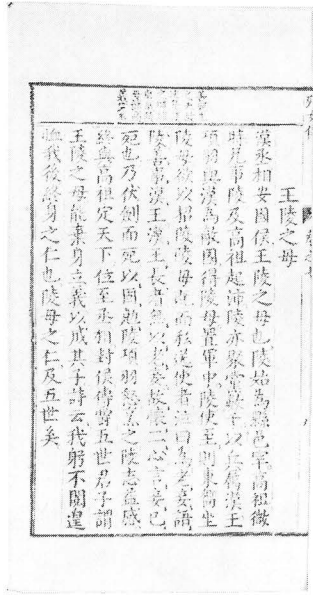 王陵之母
漢丞相安國侯王陵之母也陵始為縣邑豪高祖微
時兄事陵及高祖起沛陵亦聚黨數千以兵屬漢王
項羽與漢為敵國得陵母置軍中陵使至則東嚮坐
陵母欲以招陵陵母既而私送使者泣曰為老妾語
陵善事漢王漢王長者無以老妾故懷二心言妾已
死也乃伏劍而死以固勉陵項羽怒烹之陵志益感
終與高祖定天下位至丞相封侯傳爵五世君子謂
王陵之母能棄身立義以成其子詩云我躬不閱遑
恤我後終身之仁也陵母之仁及五世矣